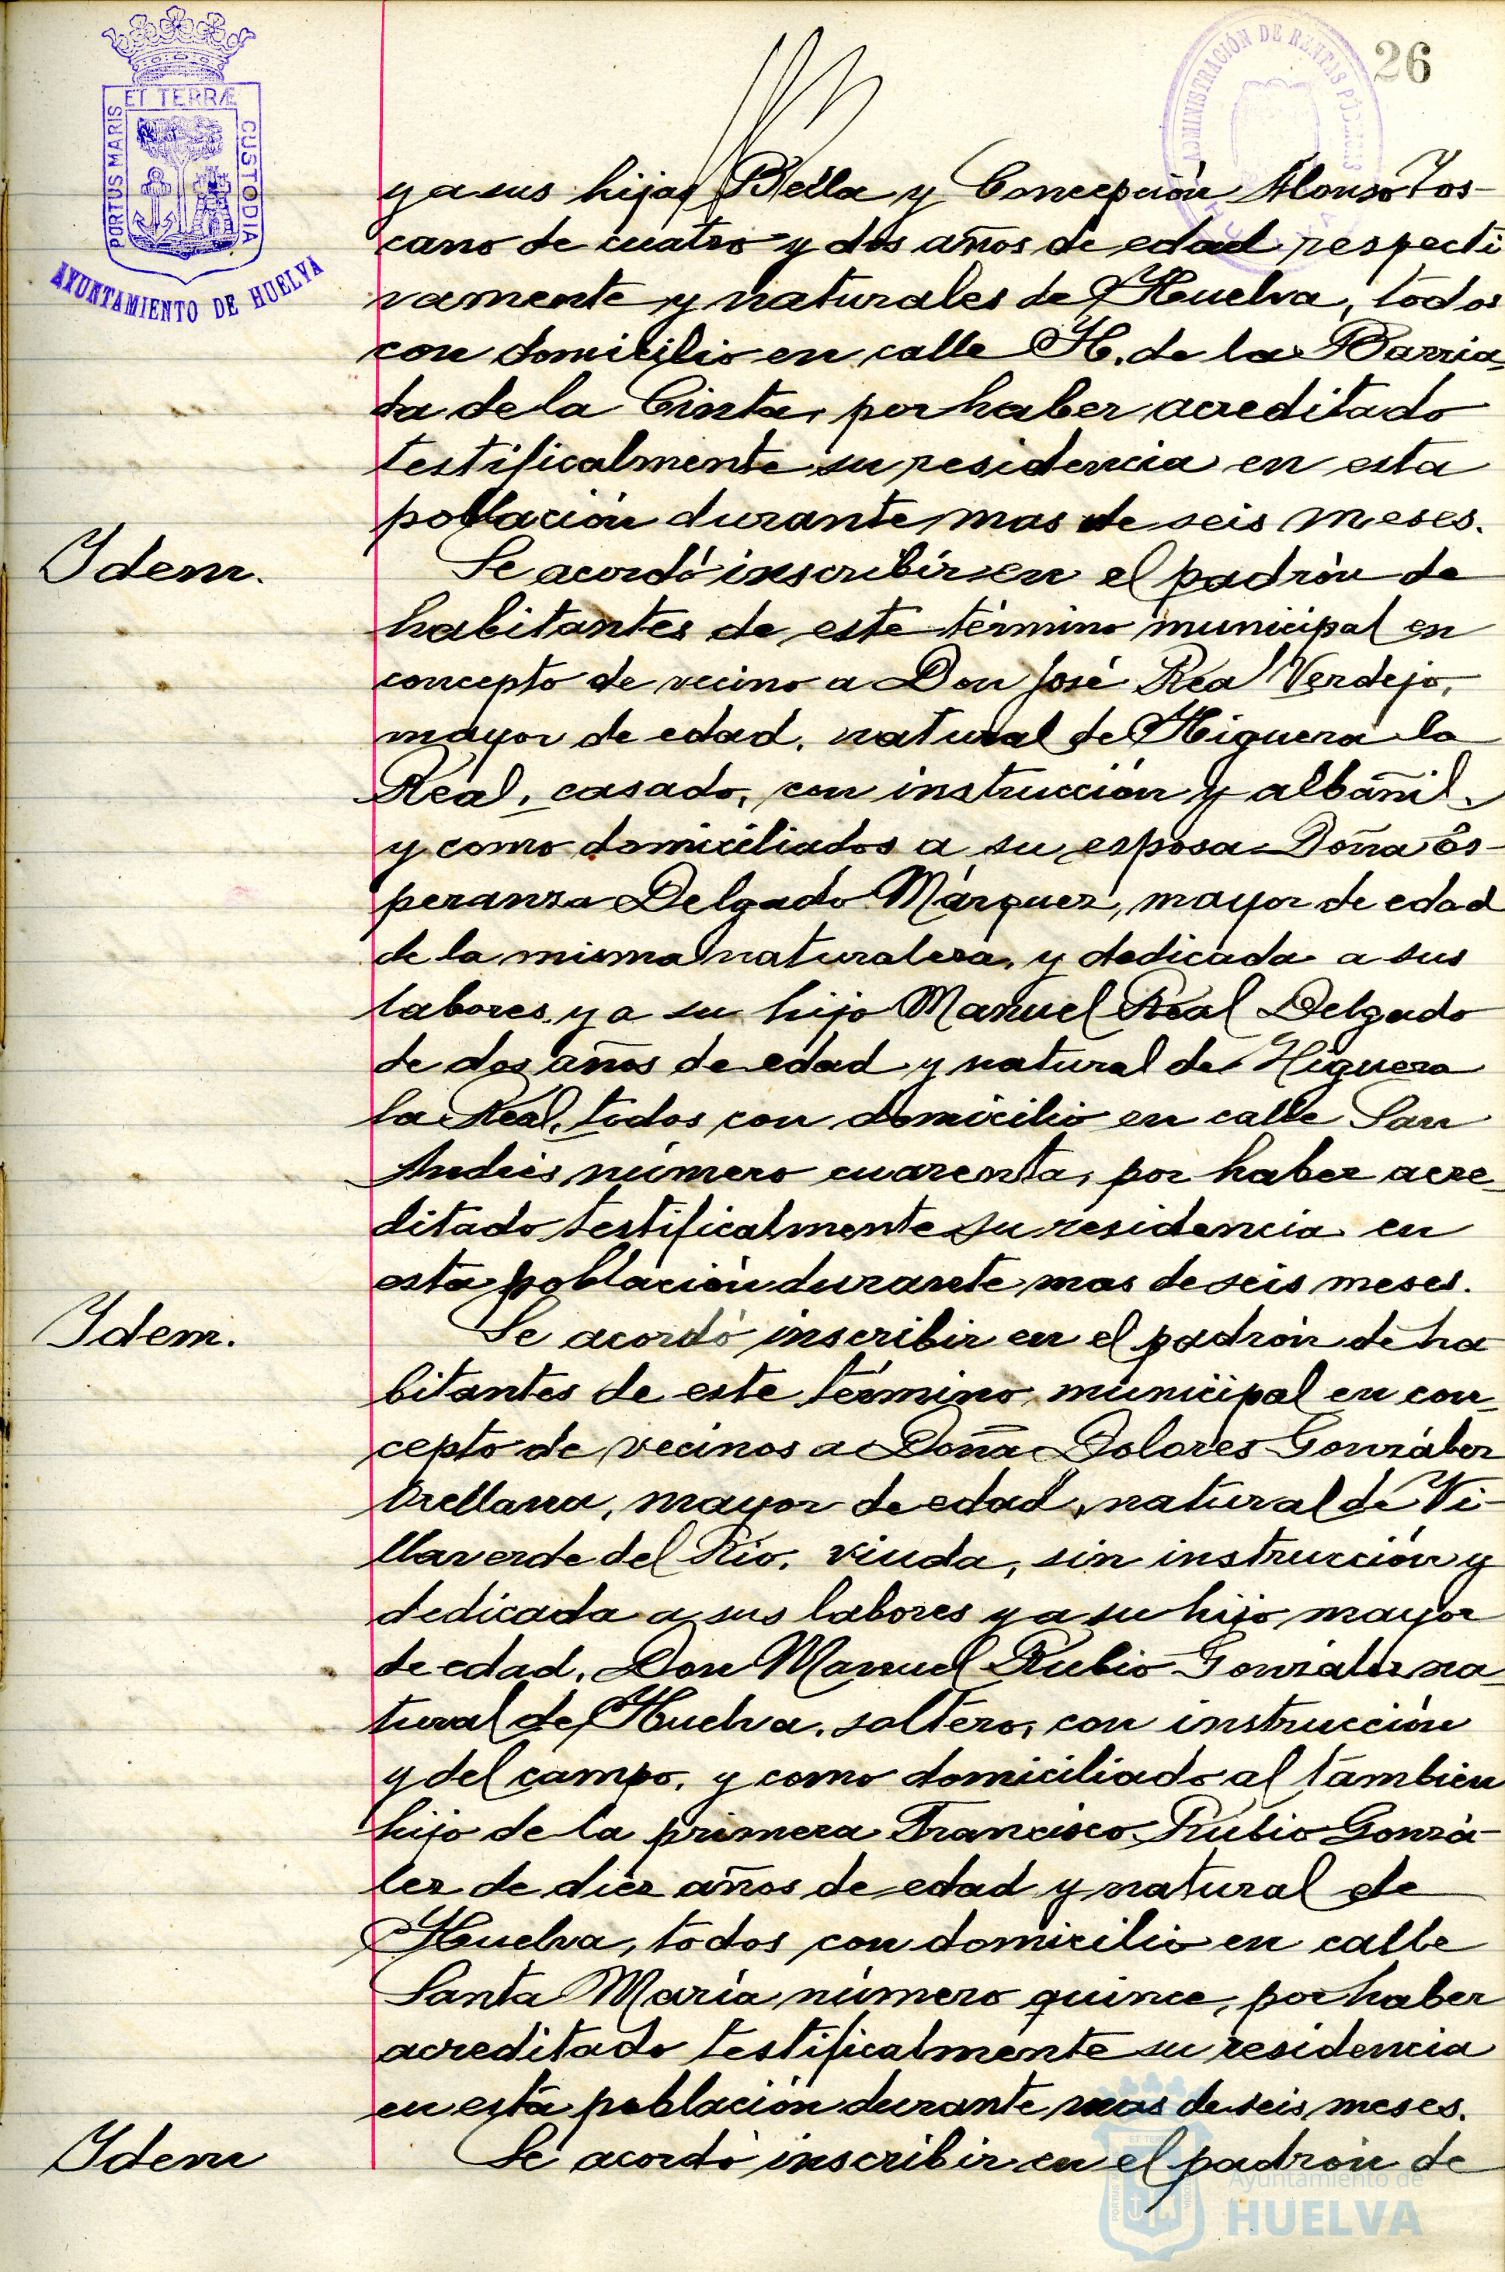 PORTUS MARIS ET TERRÆ CUSTODIA
AYUNTAMIENTO DE HUELVA
ADMINISTRACIÓN DE RENTAS PÚBLICAS
26
y a sus hijas Bella y Concepción Alonso Tos-
cano de cuatro y dos años de edad respecti
vamente y naturales de Huelva, todos
con domicilio en calle H. de la Barria-
da de la Cinta, por haber acreditado
testificalmente su residencia en esta
población durante mas de seis meses.
Idem.
Se acordó inscribir en el padrón de
habitantes de este término municipal en
concepto de vecino a Don José Rea Verdejo,
mayor de edad, natural de Higuera la
Real, casado, con instrucción y albañil,
y como domiciliados a su esposa Doña Es-
peranza Delgado Márquez, mayor de edad
de la misma naturaleza, y dedicada a sus
labores, y a su hijo Manuel Real Delgado
de dos años de edad y natural de Higuera
la Real, todos con domicilio en calle San
Andrés número cuarenta, por haber acre-
ditado testificalmente su residencia en
esta población durante mas de seis meses.
Idem.
Se acordó inscribir en el padrón de ha
bitantes de este término municipal en con-
cepto de vecinos a Doña Dolores González
Orellana, mayor de edad, natural de Vi-
llaverde del Río, viuda, sin instrucción y
dedicada a sus labores y a su hijo mayor
de edad, Don Manuel Rubio González na-
tural de Huelva, soltero, con instrucción
y del campo, y como domiciliado al también
hijo de la primera Francisco Rubio Gonzá-
lez de diez años de edad y natural de
Huelva, todos con domicilio en calle
Santa María número quince, por haber
acreditado testificalmente su residencia
en esta población durante mas de seis meses.
Idem
Se acordó inscribir en el padrón de
Ayuntamiento de
HUELVA